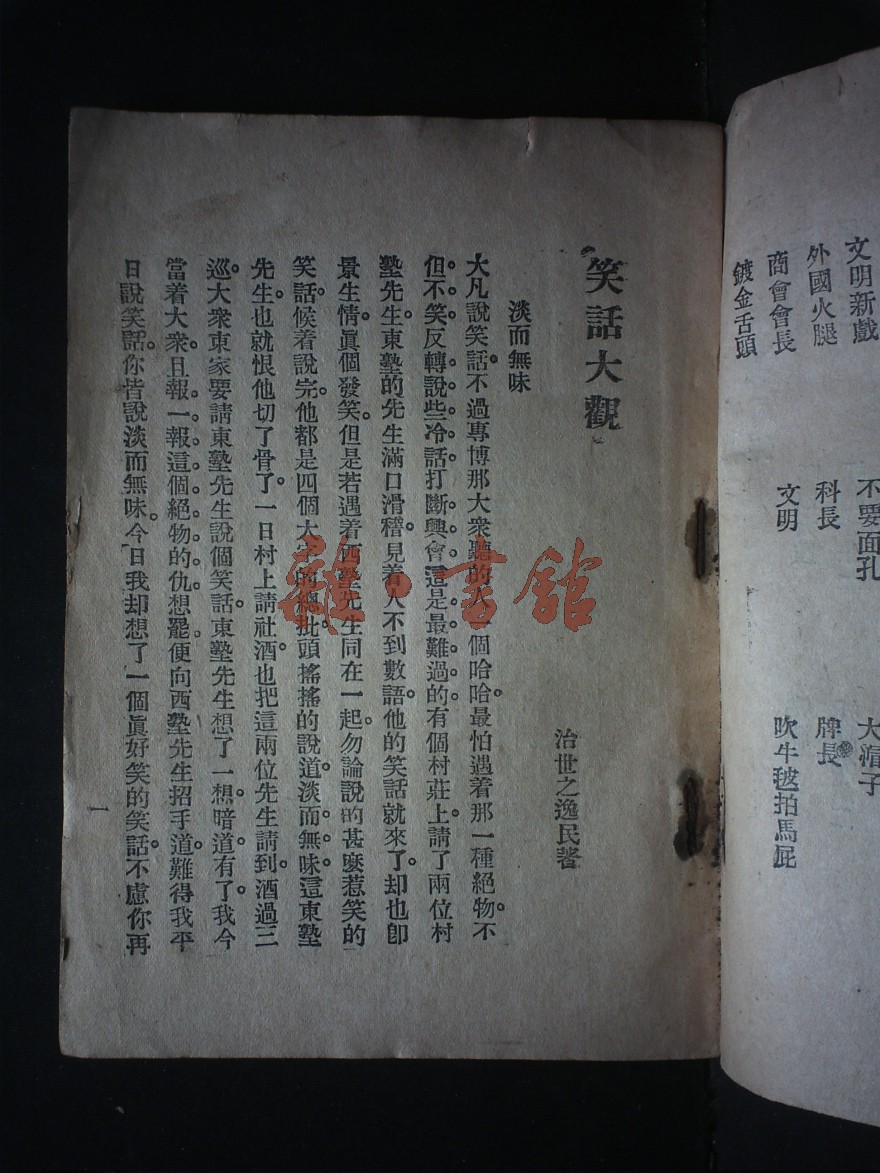 文明新戲
不要面孔
大滑子
外國火腿
科長
牌長
商會會長
文明
吹牛𣬠拍馬屁
鍍金舌頭
笑話大觀
治世之逸民著
淡而無味
大凡說笑話。不過專博那大衆聽的人一個哈哈。最怕遇着那一種絕物。不
但。不笑。反轉說些冷話。打斷興會。這是最難過的。有個村莊上請了兩位村
塾先生。東塾的先生滿口滑稽。見着人不到數語。他的笑話就來了。却也卽
景生情。眞個發笑。但是若遇着西塾先生同在一起。勿論說的甚麼惹笑的
笑話。候着說完。他都是四個大字的總批。頭搖搖的說道。淡而無味。這東塾
先生。也就恨他切了骨了。一日村上請社酒。也把這兩位先生請到。酒過三
巡。大衆東家要請東塾先生說個笑話。東塾先生想了一想。暗道有了。我今
當着大衆。且報一報這個絕物的仇。想罷。便向西塾先生招手道。難得我平
日說笑話。你皆說淡而無味。今日我却想了一個眞好笑的笑話。不慮你再
一
雜·書館